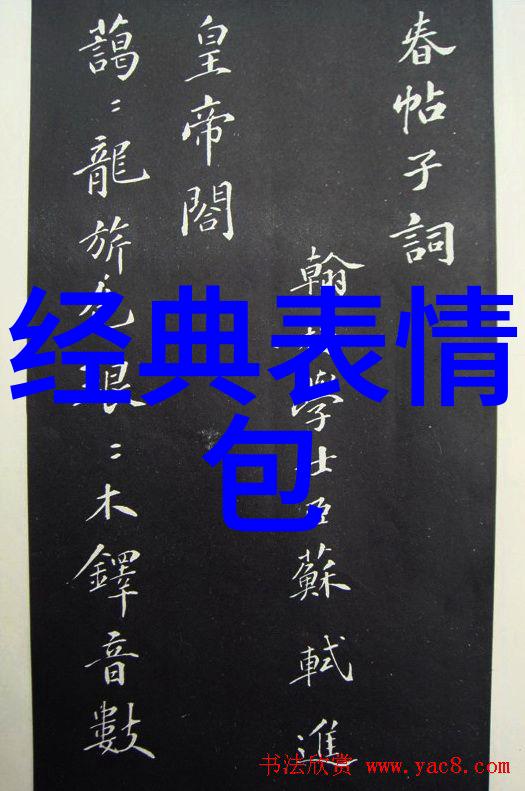 春帖子詞
翰林學士臣蘇軾進
皇帝閣
藹〻龍旂色琅〻木鐸音數
经典表情
包
书法欣赏 www.yac8.com